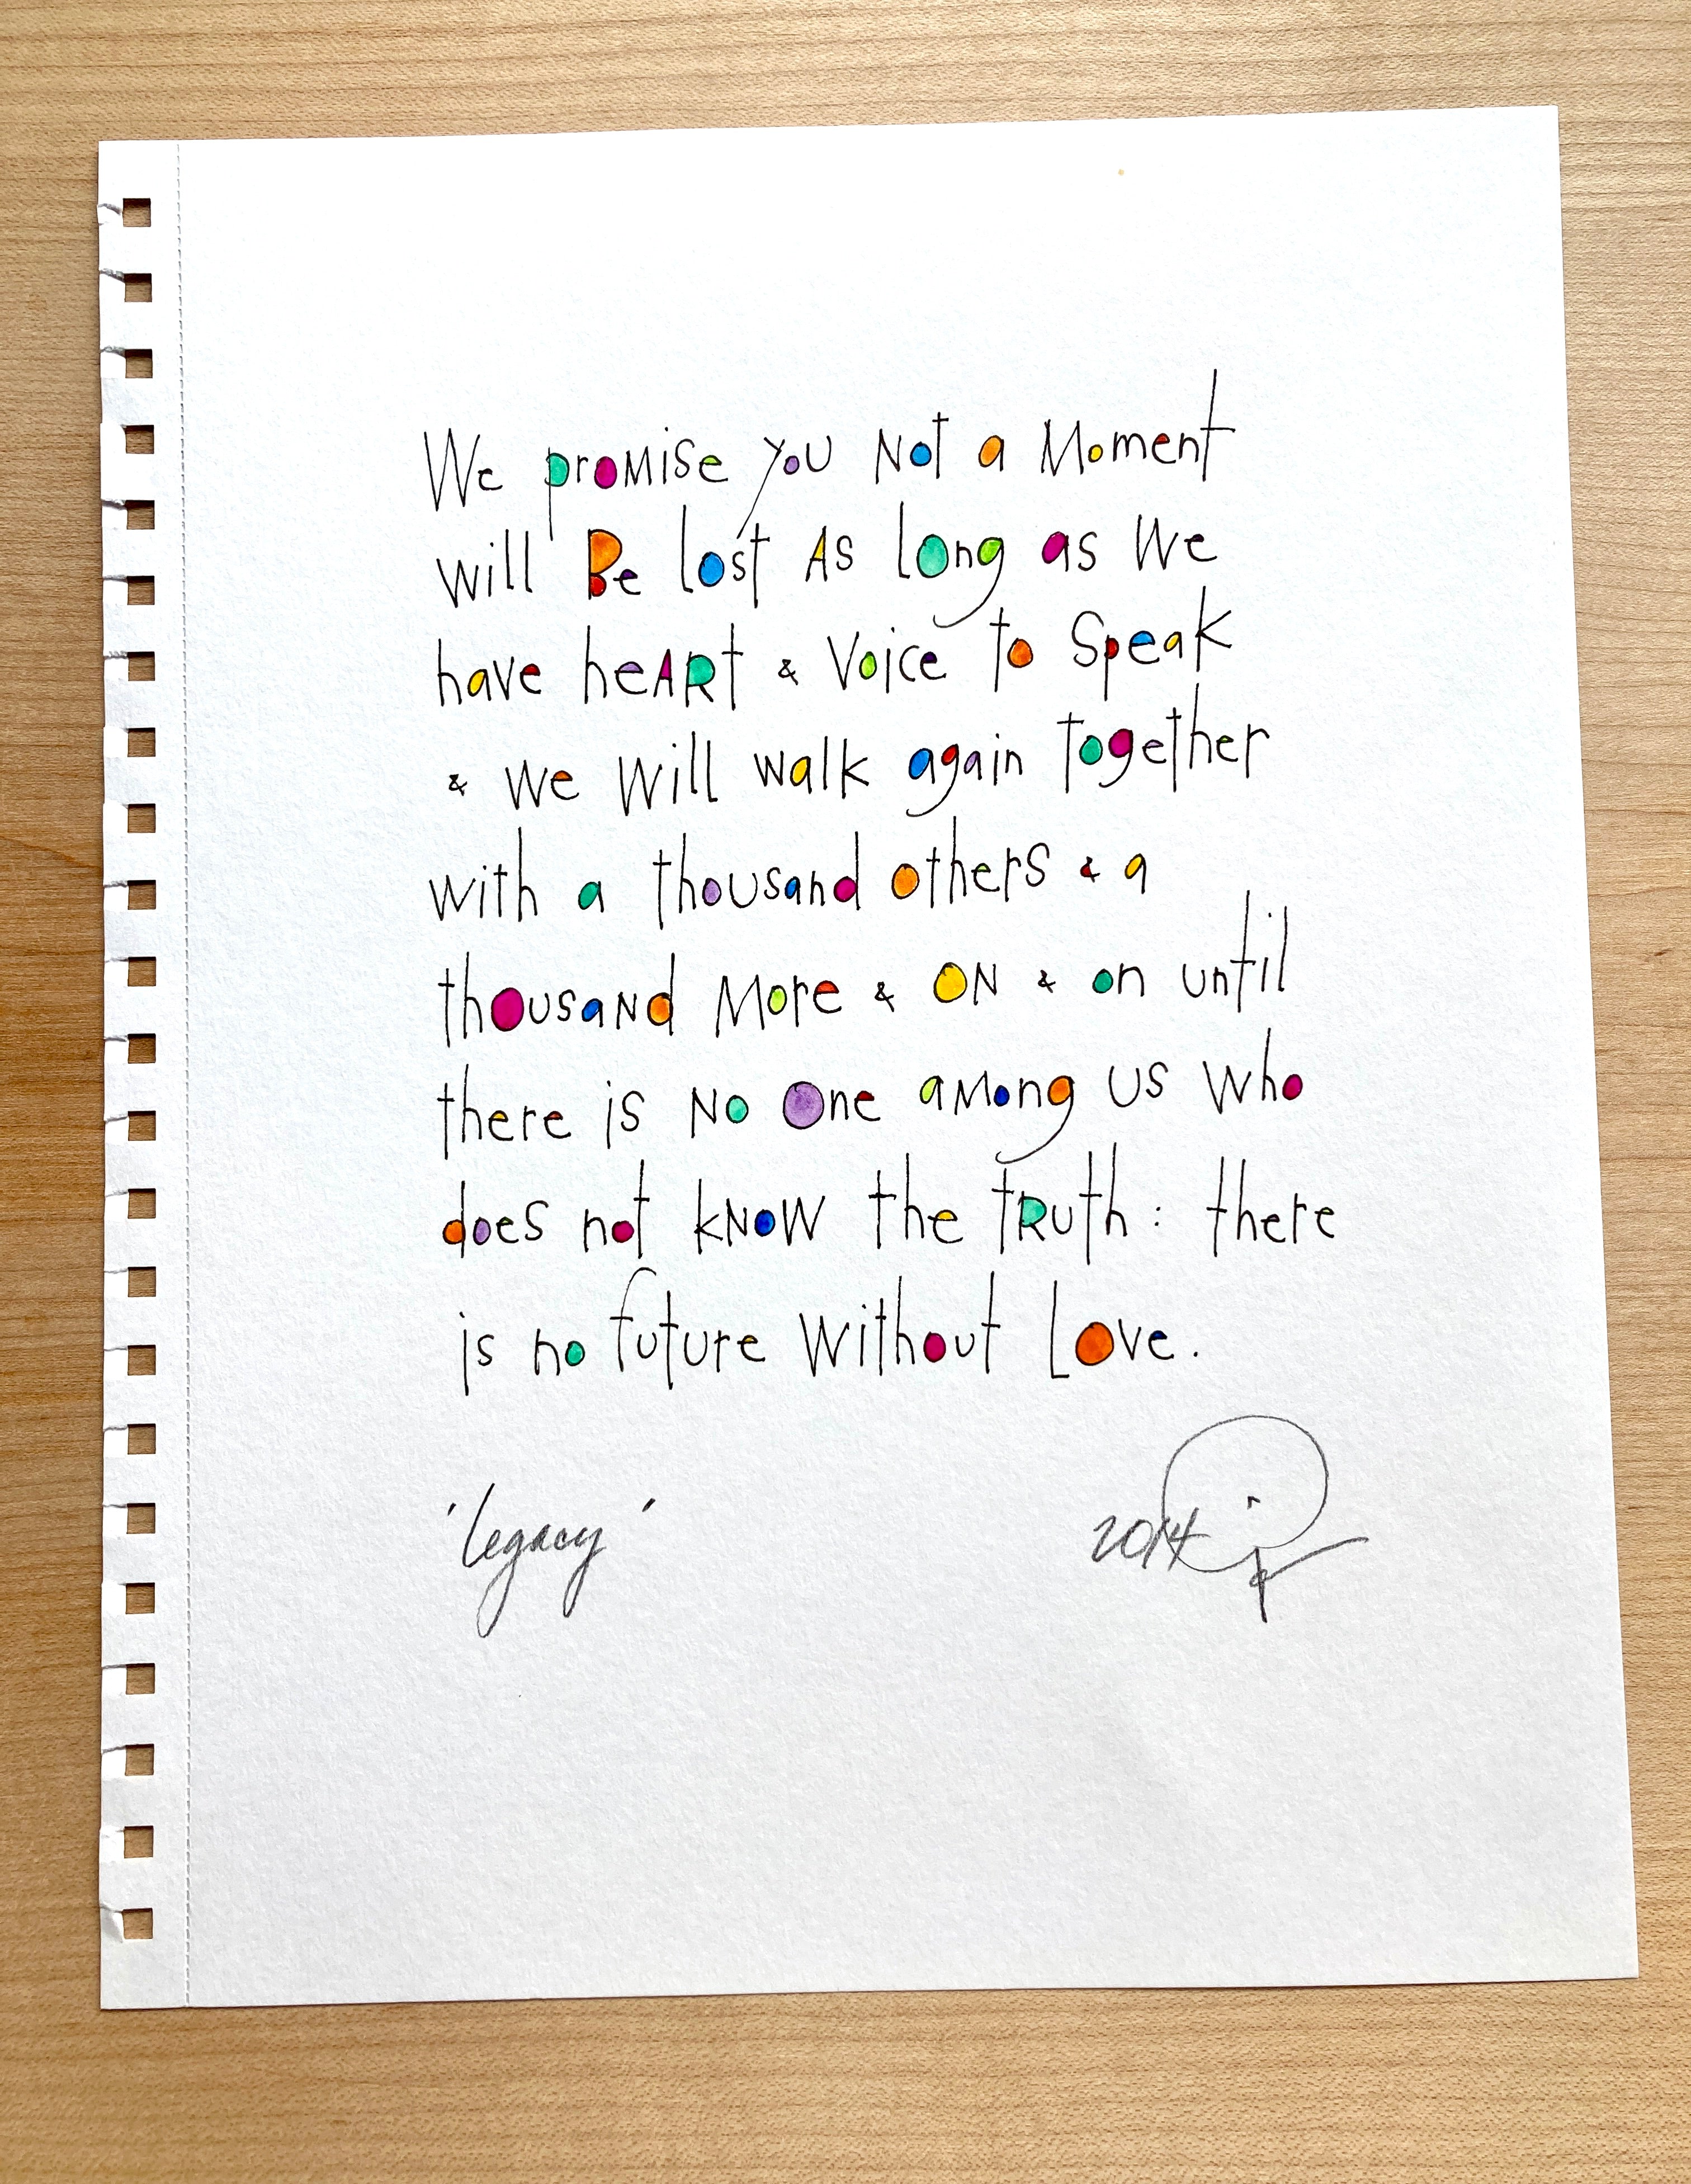 We proMise yoU Not a MoMent
will Be lost As long as We
have heARt & Voice to Speak
& we Will walk again together
with a thoUsand otherS & a
thoUsaNd More & ON & on until
there is No One aMong US Who
does not kNoW the tRUth : there
is no future Without Love.
'Legacy'
2014